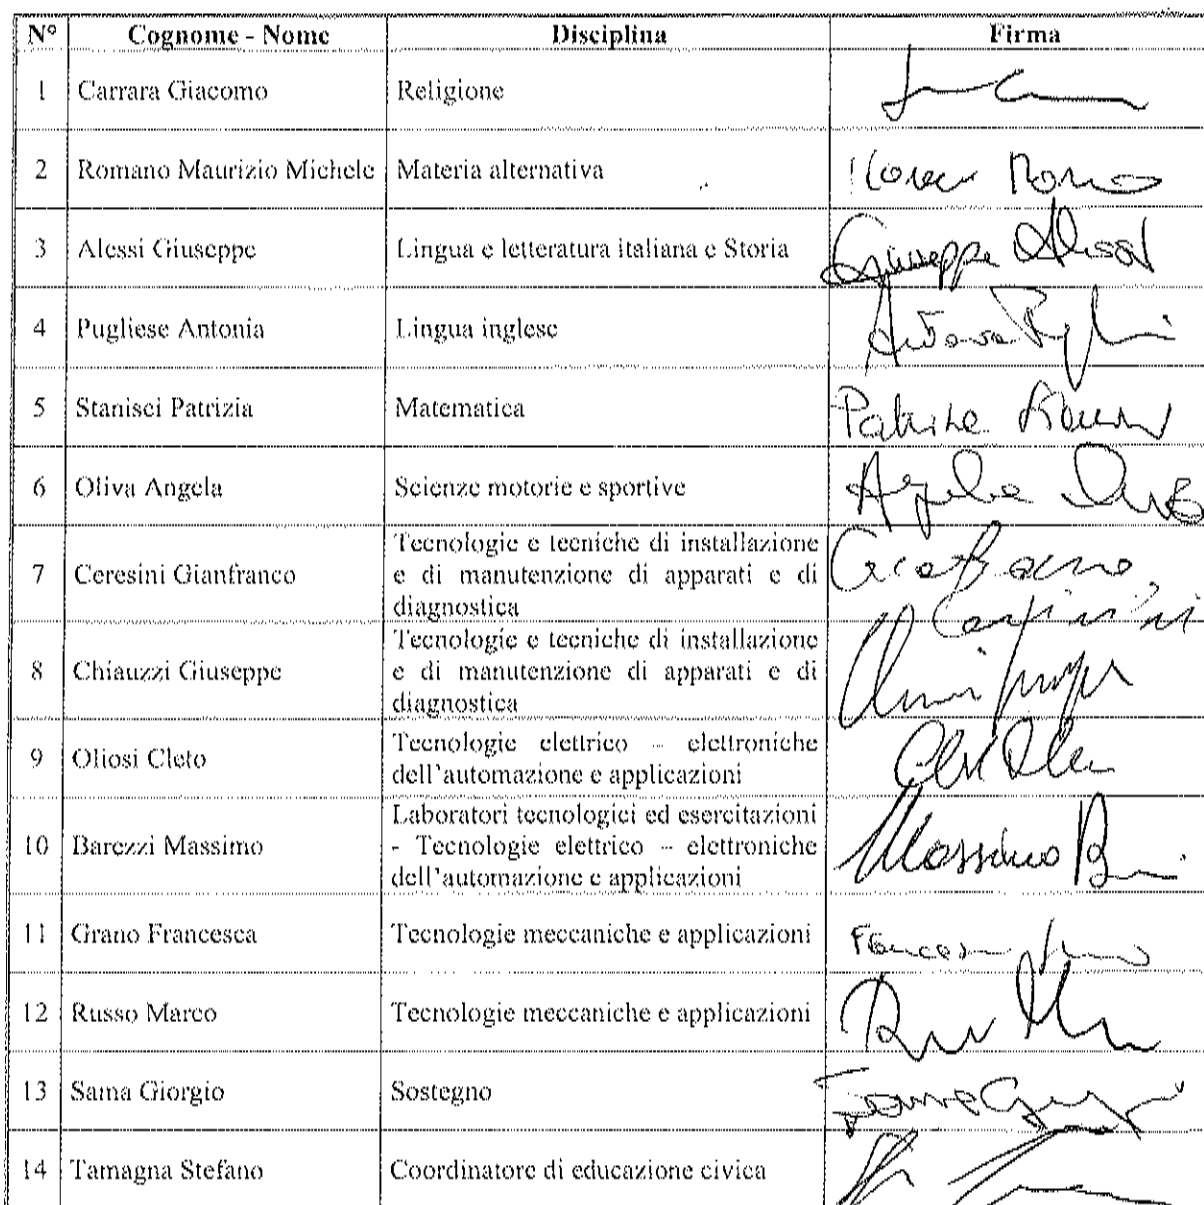 N° Cognome - Nome Disciplina Firma
1 Carrara Giacomo Religione
2 Romano Maurizio Michele Materia alternativa
3 Alessi Giuseppe Lingua e letteratura italiana e Storia Giuseppe Alessi
4 Pugliese Antonia Lingua inglese
5 Stanisci Patrizia Matematica
6 Oliva Angela Scienze motorie e sportive Angela
7 Ceresini Gianfranco Tecnologie e tecniche di installazione
e di manutenzione di apparati e di
diagnostica
8 Chiauzzi Giuseppe Tecnologie e tecniche di installazione
e di manutenzione di apparati e di
diagnostica
9 Oliosi Cleto Tecnologie elettrico – elettroniche
dell'automazione e applicazioni
10 Barezzi Massimo Laboratori tecnologici ed esercitazioni
- Tecnologie elettrico – elettroniche
dell'automazione e applicazioni Massimo
11 Grano Francesca Tecnologie meccaniche e applicazioni
12 Russo Marco Tecnologie meccaniche e applicazioni
13 Sama Giorgio Sostegno
14 Tamagna Stefano Coordinatore di educazione civica